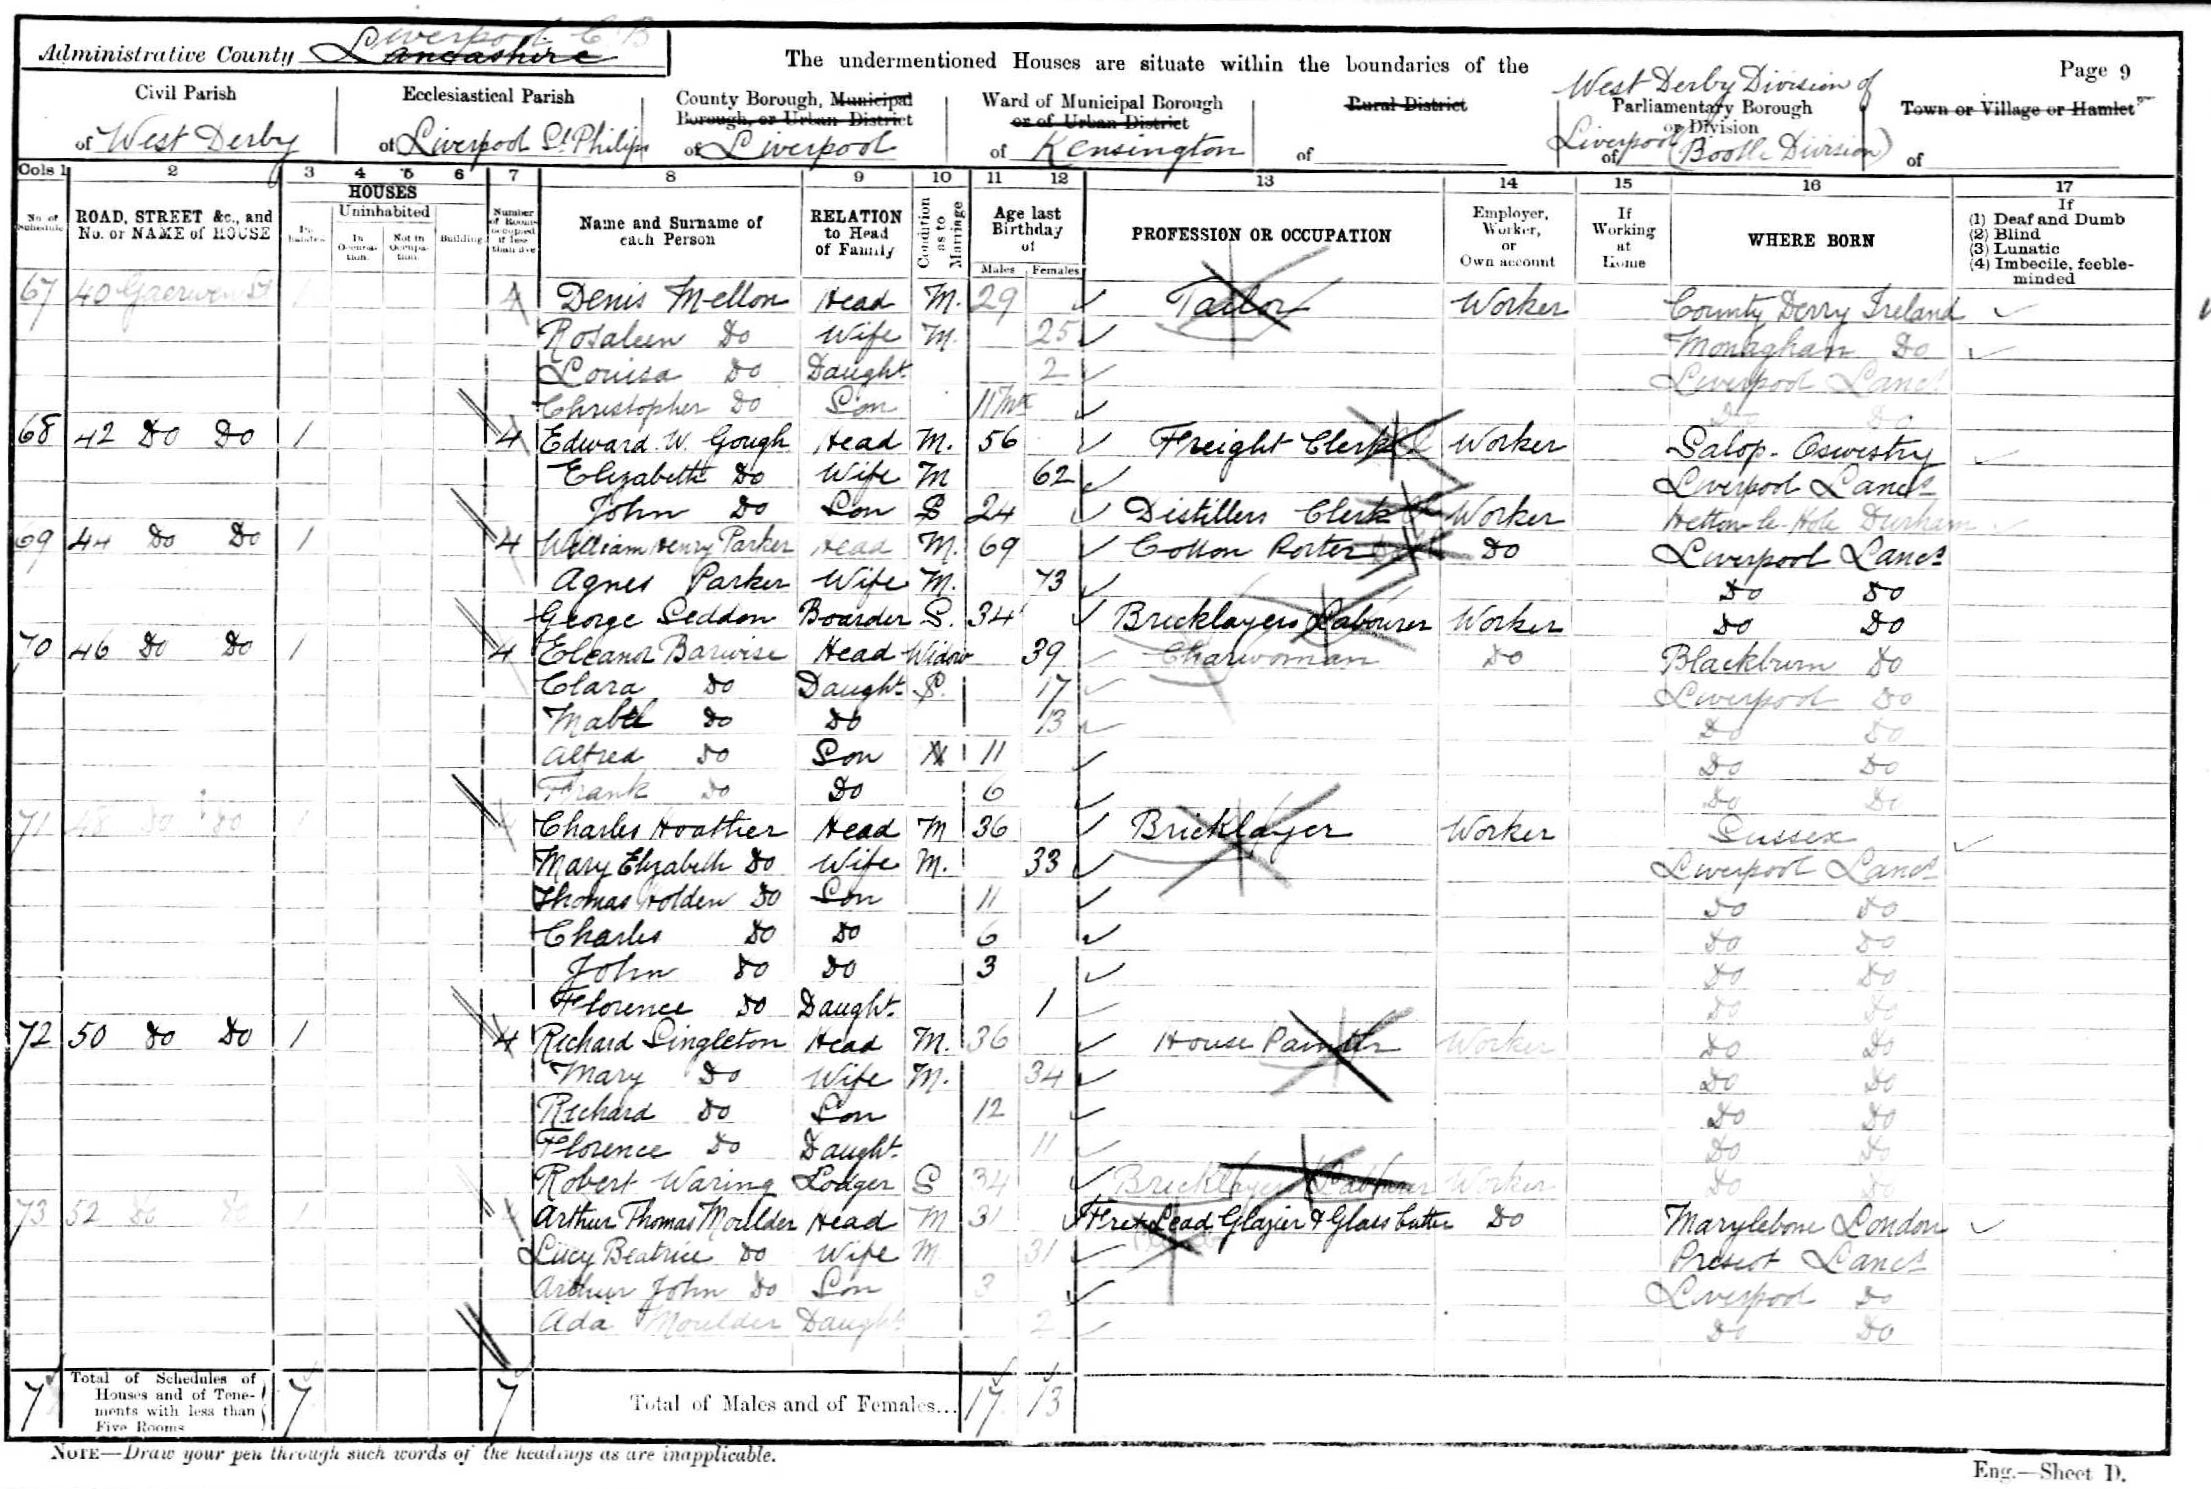 Administrative County Lancashire Liverpool C B
The undermentioned Houses are situate within the boundaries of the
Page 9
Civil Parish
of West Derby
Ecclesiastical Parish
of Liverpool St Philips
County Borough, Municipal
Borough, or Urban District
of Liverpool
Ward of Municipal Borough
or of Urban District
of Kensington
Rural District
of
West Derby Division of
Parliamentary Borough
or Division
of Liverpool (Bootle Division)
Town or Village or Hamlet
of
Cols 1 2 3 4 5 6 7 8 9 10 11 12 13 14 15 16 17
No. of Schedule
ROAD, STREET &c., and
No. or NAME of HOUSE
HOUSES
Inhabited
Uninhabited
In Occupation.
Not in Occupation.
Building
Number of Rooms occupied if less than five
Name and Surname of
each Person
RELATION
to Head
of Family
Condition as to Marriage
Age last
Birthday
of
Males Females
PROFESSION OR OCCUPATION
Employer,
Worker,
or
Own account
If
Working
at
Home
WHERE BORN
If
(1) Deaf and Dumb
(2) Blind
(3) Lunatic
(4) Imbecile, feeble-
minded
67 40 Gaerwen St 1 4 Denis Mellon Head M. 29 Tailor Worker County Derry Ireland
Rosaleen Do Wife M. 25 Monaghan Do
Louisa Do Daught. 2 Liverpool Lancs
Christopher Do Son 11 Mts Do Do
68 42 Do Do 1 4 Edward W. Gough Head M. 56 Freight Clerk Worker Salop - Oswestry
Elizabeth Do Wife M 62 Liverpool Lancs
John Do Son S 24 Distillers Clerk Worker Hetton-le-Hole Durham
69 44 Do Do 1 4 William Henry Parker Head M. 69 Cotton Porter Do Liverpool Lancs
Agnes Parker Wife M. 73 Do Do
George Seddon Boarder S. 34 Bricklayers Labourer Worker Do Do
70 46 Do Do 1 4 Eleanor Barwise Head Widow 39 Charwoman Do Blackburn Do
Clara Do Daught. S. 17 Liverpool Do
Mabel Do Do 13 Do Do
Alfred Do Son 11 Do Do
Frank Do Do 6 Do Do
71 48 Do Do 1 4 Charles Hoather Head M 36 Bricklayer Worker Sussex
Mary Elizabeth Do Wife M. 33 Liverpool Lancs
Thomas Holden Do Son 11 Do Do
Charles Do Do 6 Do Do
John Do Do 3 Do Do
Florence Do Daught. 1 Do Do
72 50 Do Do 1 4 Richard Singleton Head M. 36 House Painter Worker Do Do
Mary Do Wife M. 34 Do Do
Richard Do Son 12 Do Do
Florence Do Daught. 11 Do Do
Robert Waring Lodger S 34 Bricklayers Labourer Worker Do Do
73 52 Do Do 1 4 Arthur Thomas Moulder Head M 31 Lead Glazier & Glass Cutter Do Marylebone London
Lucy Beatrice Do Wife M 31 Prescot Lancs
Arthur John Do Son 3 Liverpool Do
Ada Moulder Daught. 2 Do Do
7 Total of Schedules of
Houses and of Tene-
ments with less than
Five Rooms
7 7 Total of Males and of Females... 17 13
NOTE—Draw your pen through such words of the headings as are inapplicable.
Eng.—Sheet D.